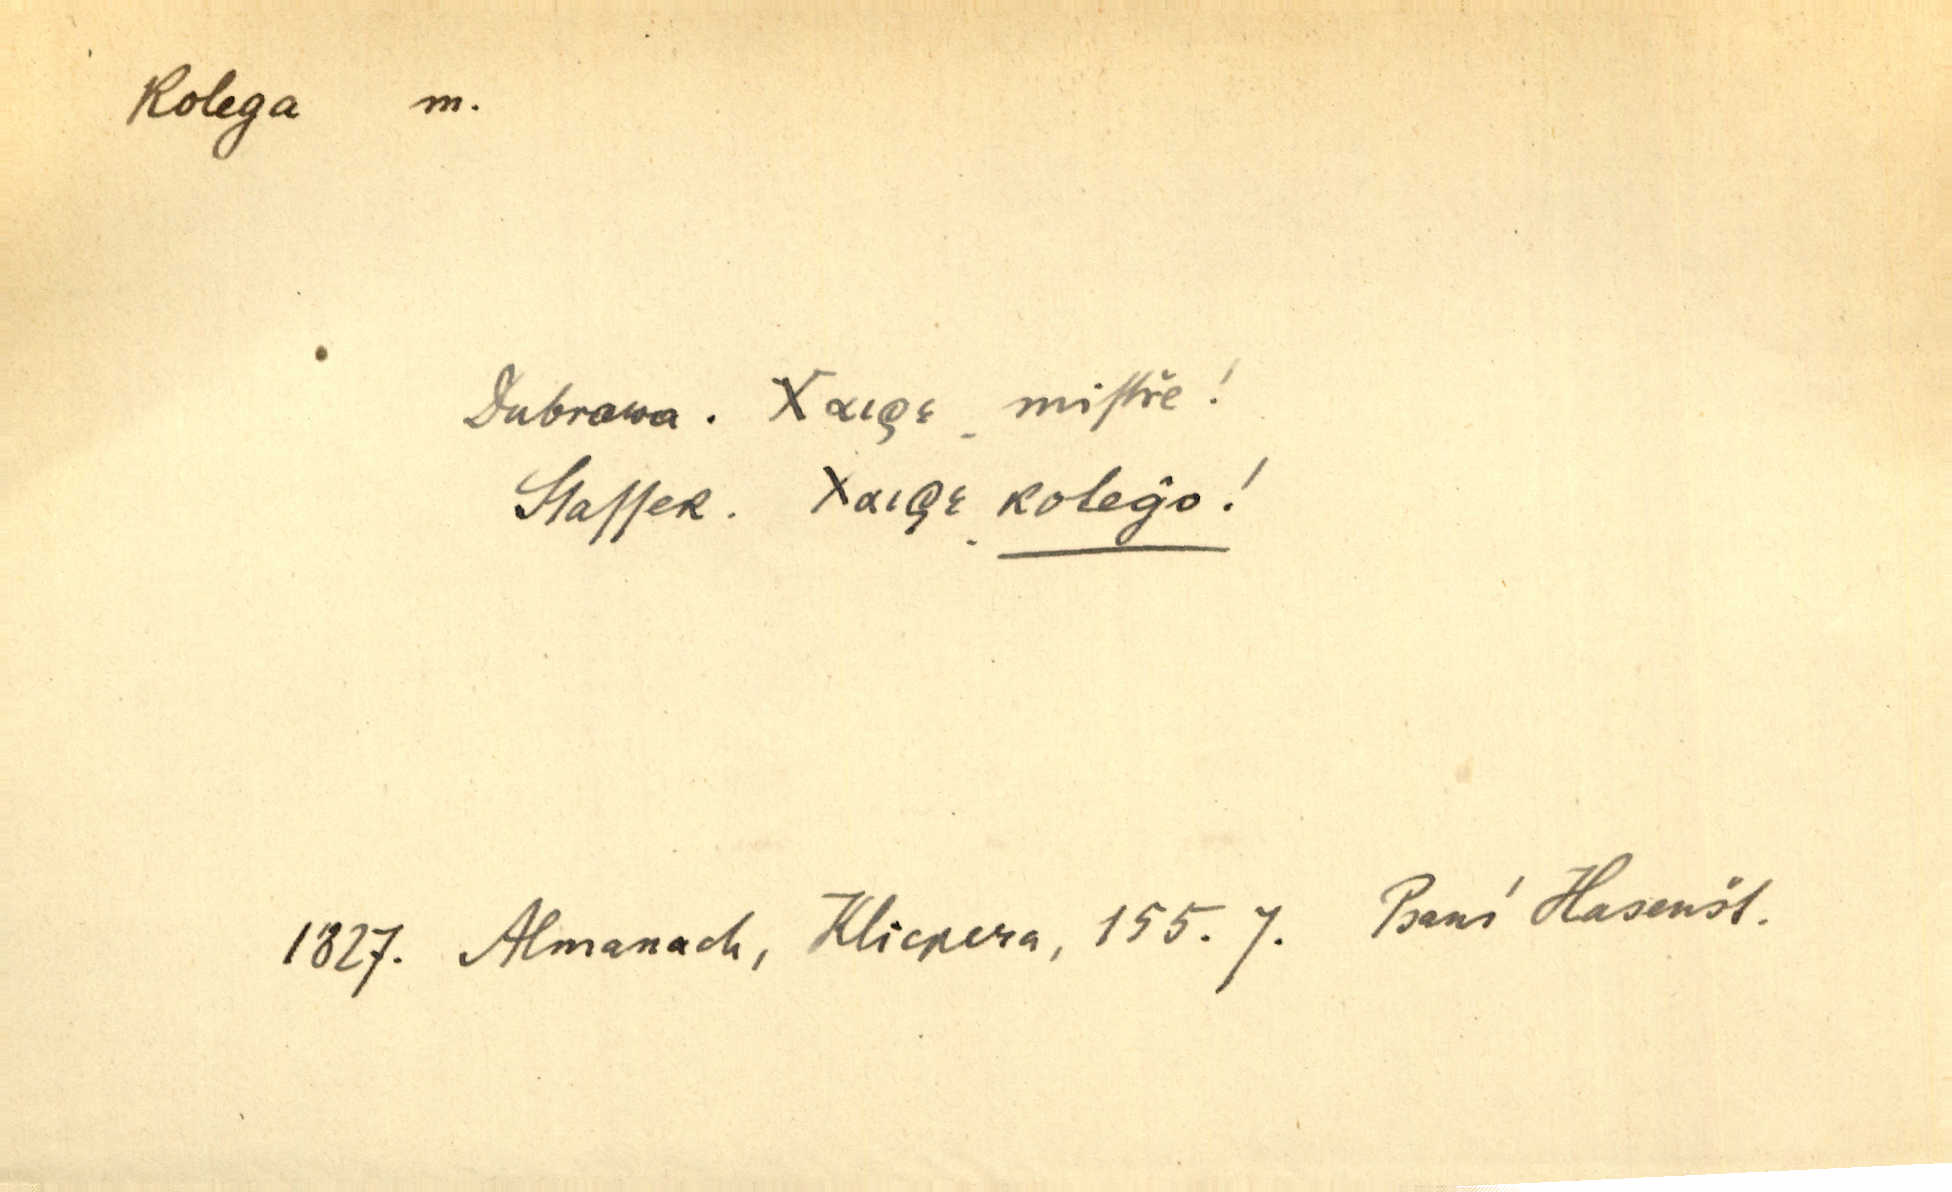 Kolega m.
Dubrawa. Χαιρε miſtře!
Staſſek. Χαιρε koleǧo!
1827. Almanach, Klicpera, 155. 7. Psaní Hasenšt.